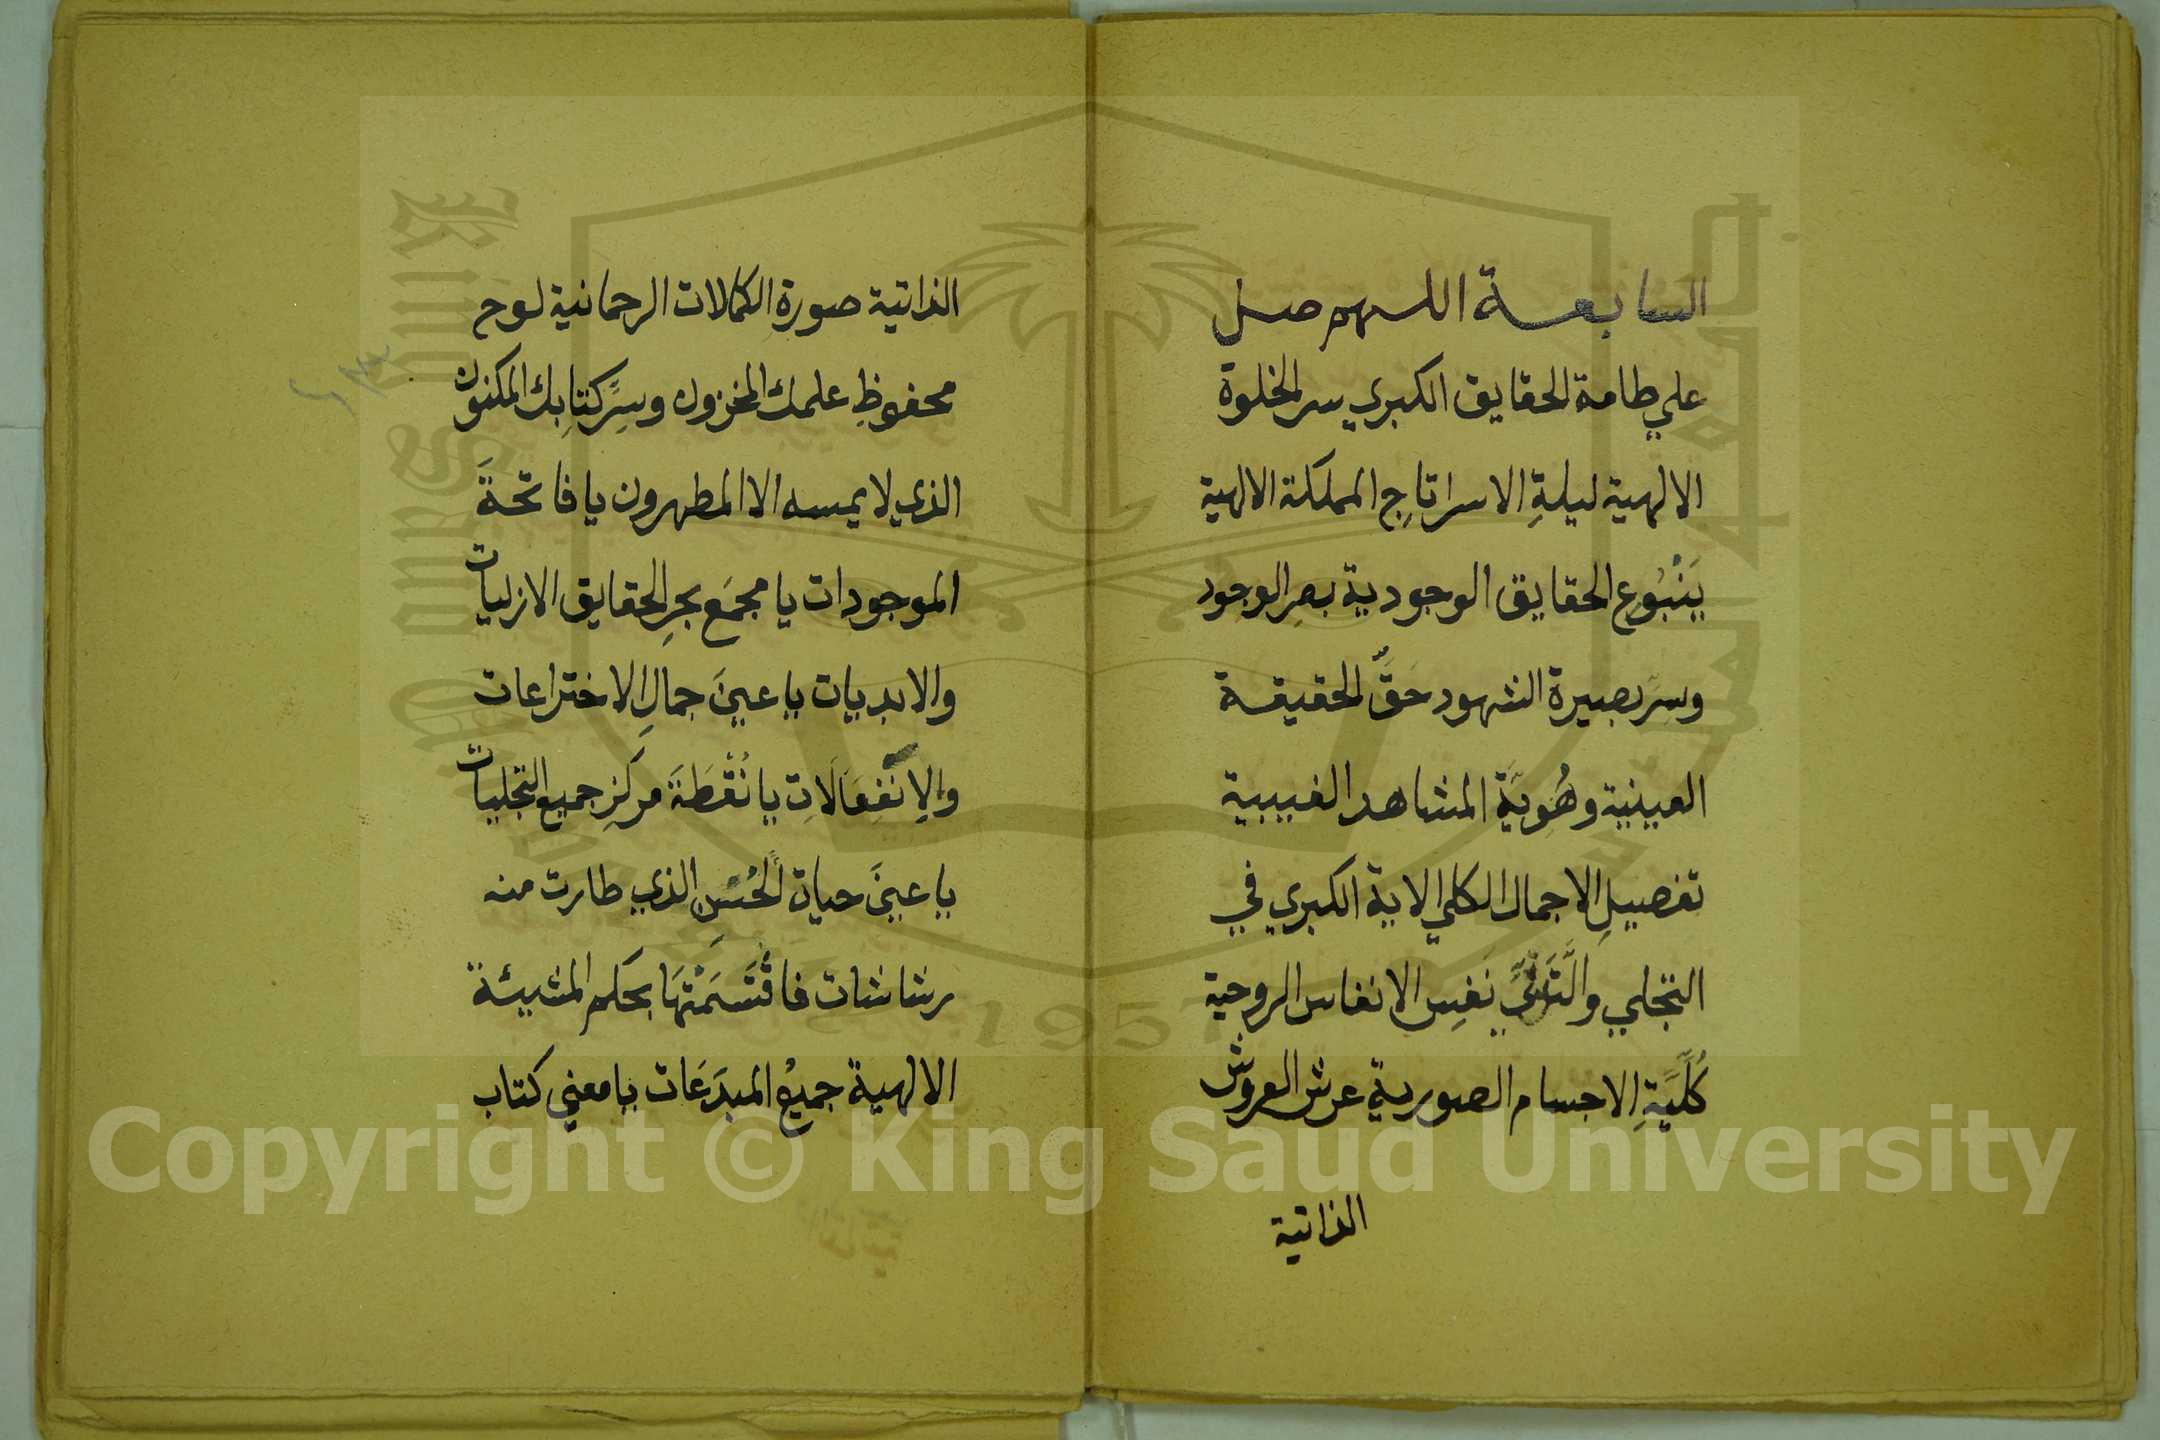 السابعة اللهم صل
علي طامة الحقايق الكبري سر الخلوة
الالهية ليلةِ الاسرا تاجِ المملكة الالهية
يَنْبُوعِ الحقايق الوجودية بصرِ الوجود
وسرِّ بصيرة الشهود حَقِّ الحقيقة
العينية وهُويَّةِ المشاهد الغيبية
تفصيلِ الاجمال الكلي الاية الكبري في
التجلي والتَّدَلِّي نَفَسِ الانفاس الروحية
كُلِّيَّةِ الاجسام الصورية عرش العروش
الذاتية
الذاتية صورة الكمالات الرحمانية لوح
محفوظِ علمك المخزون وسِرِّ كتابِك المكنون
الذي لا يمسه الا المطهرون يا فاتحةَ
الموجودات يا مجمَع بحرِ الحقايق الازليات
والابديات يا عينَ جمالِ الاختراعات
والاِنْفِعَالَاتِ يا نُقْطَةَ مركزِ جميع التجليات
يا عينَ حياة الحُسْنِ الذي طارت منه
رشاشات فاقْتَسَمَتْهَا بحكم المشيئة
الالهية جميعُ المبدَعَات يا معني كتاب
Copyright © King Saud University
King Saud
1957